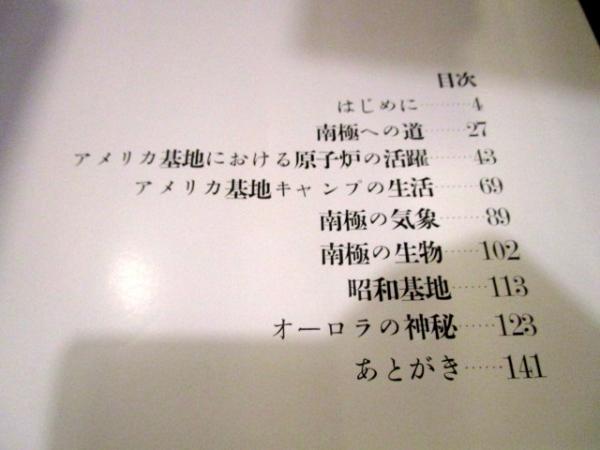 目次
はじめに………4
南極への道……27
アメリカ基地における原子炉の活躍……43
アメリカ基地キャンプの生活……69
南極の気象……89
南極の生物……102
昭和基地……113
オーロラの神秘……123
あとがき……141